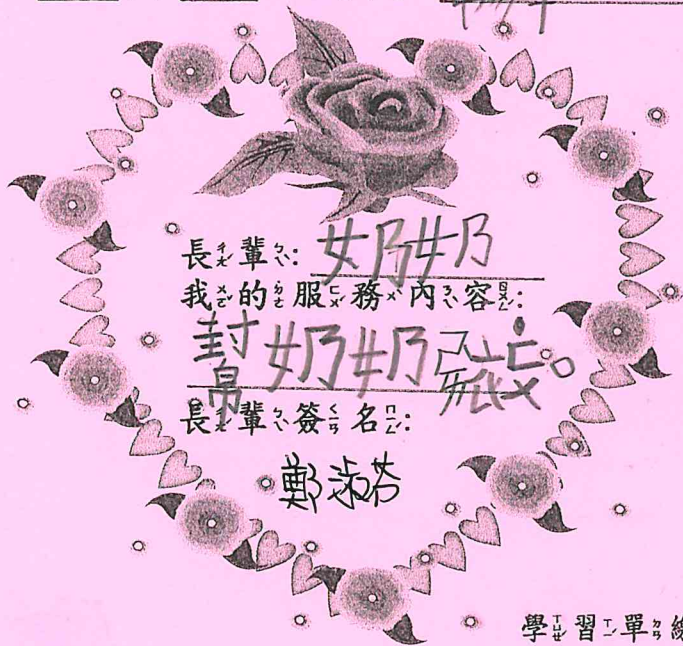 長輩: 奶奶
我的服務內容:
幫奶奶
長輩簽名:
鄭淑芬
學習單